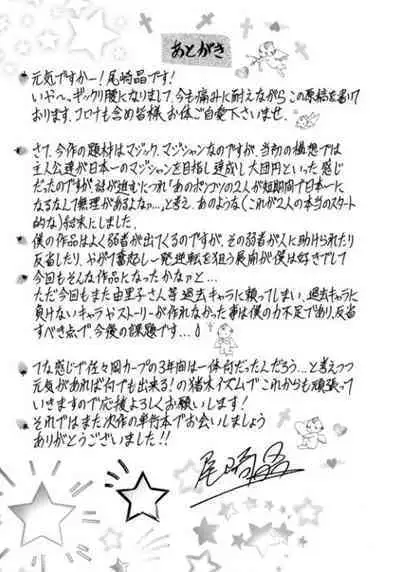 あとがき
元気ですかー!尾崎晶です!
いや〜、ギックリ腰になりまして、今も痛みに耐えながらこの原稿を書いて
おります。コロナも含め皆様、お体ご自愛下さいませ。
さて、今作の題材はマジック、マジシャンなのですが、当初の構想では
主人公達が日本一のマジシャンを目指し達成し大団円といった感じ
だったのですが、話が進むにつれ「あのポンコツの2人が短期間で日本一に
なるなんて無理があるよなァ…」と考え、あのような(これが2人の本当のスタート
的な)結末にしました。
僕の作品はよく弱者が出てくるのですが、その弱者が人に助けられたり
反省したり、やがて奮起し一発逆転を狙う展開が僕は好きでして
今回もそんな作品になったかなァと…
ただ今回もまた由里子さん等過去キャラに頼ってしまい、過去キャラに
負けないキャラやストーリーが作れなかった事は僕の力不足であり、反省
すべき点で、今後の課題です…
てな感じで佐々岡カープの3年間は一体何だったんだろう…と考えつつ
元気があれば何でも出来る!の猪木イズムでこれからも頑張って
いきますので応援よろしくお願いします!
それではまた次作の単行本でお会いしましょう
ありがとうございました!!
尾崎晶